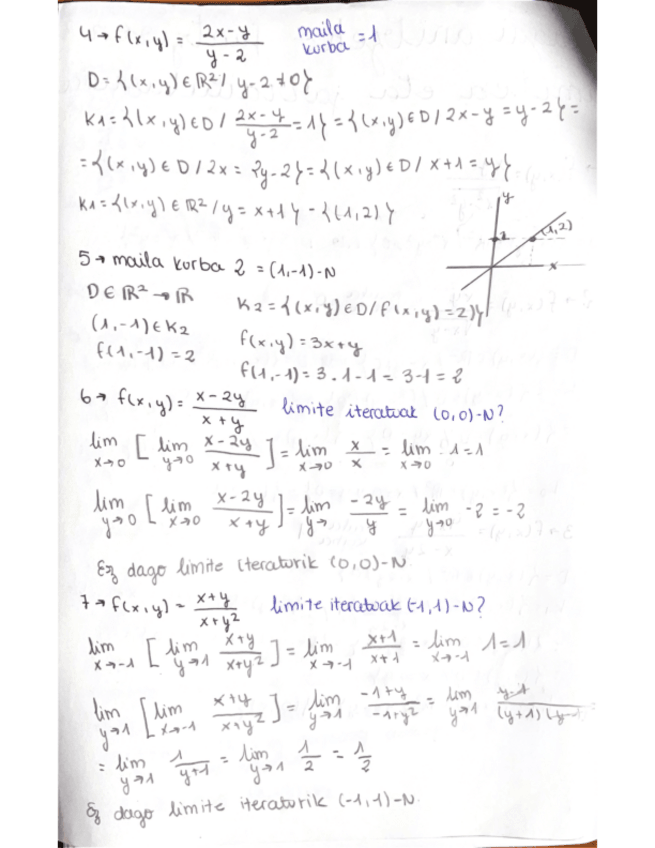 4 → f(x,y) = \frac{2x-y}{y-2} maila kurba = 1
D = {(x,y) ∈ ℝ² / y-2 ≠ 0}
K1 = {(x,y) ∈ D / \frac{2x-y}{y-2} = 1} = {(x,y) ∈ D / 2x-y = y-2} =
= {(x,y) ∈ D / 2x = 2y-2} = {(x,y) ∈ D / x+1 = y}
K1 = {(x,y) ∈ ℝ² / y = x+1} - {(1,2)}
y
2
(1,2)
x
5 → maila kurba 2 = (1,-1)-N
D ∈ ℝ² → ℝ
K2 = {(x,y) ∈ D / f(x,y) = 2}
(1,-1) ∈ K2
f(x,y) = 3x+y
f(1,-1) = 2
f(1,-1) = 3·1-1 = 3-1 = 2
6 → f(x,y) = \frac{x-2y}{x+y} limite iteratuak (0,0)-N?
lim_{x→0} [ lim_{y→0} \frac{x-2y}{x+y} ] = lim_{x→0} \frac{x}{x} = lim_{x→0} 1 = 1
lim_{y→0} [ lim_{x→0} \frac{x-2y}{x+y} ] = lim_{y→} \frac{-2y}{y} = lim_{y→0} -2 = -2
Ez dago limite iteraturik (0,0)-N.
7 → f(x,y) = \frac{x+y}{x+y²} limite iteratuak (-1,1)-N?
lim_{x→-1} [ lim_{y→1} \frac{x+y}{x+y²} ] = lim_{x→-1} \frac{x+1}{x+1} = lim_{x→-1} 1 = 1
lim_{y→1} [ lim_{x→-1} \frac{x+y}{x+y²} ] = lim_{y→1} \frac{-1+y}{-1+y²} = lim_{y→1} \frac{y-1}{(y+1)(y-1)} =
= lim_{y→1} \frac{1}{y+1} = lim_{y→1} \frac{1}{2} = \frac{1}{2}
Ez dago limite iteraturik (-1,1)-N.